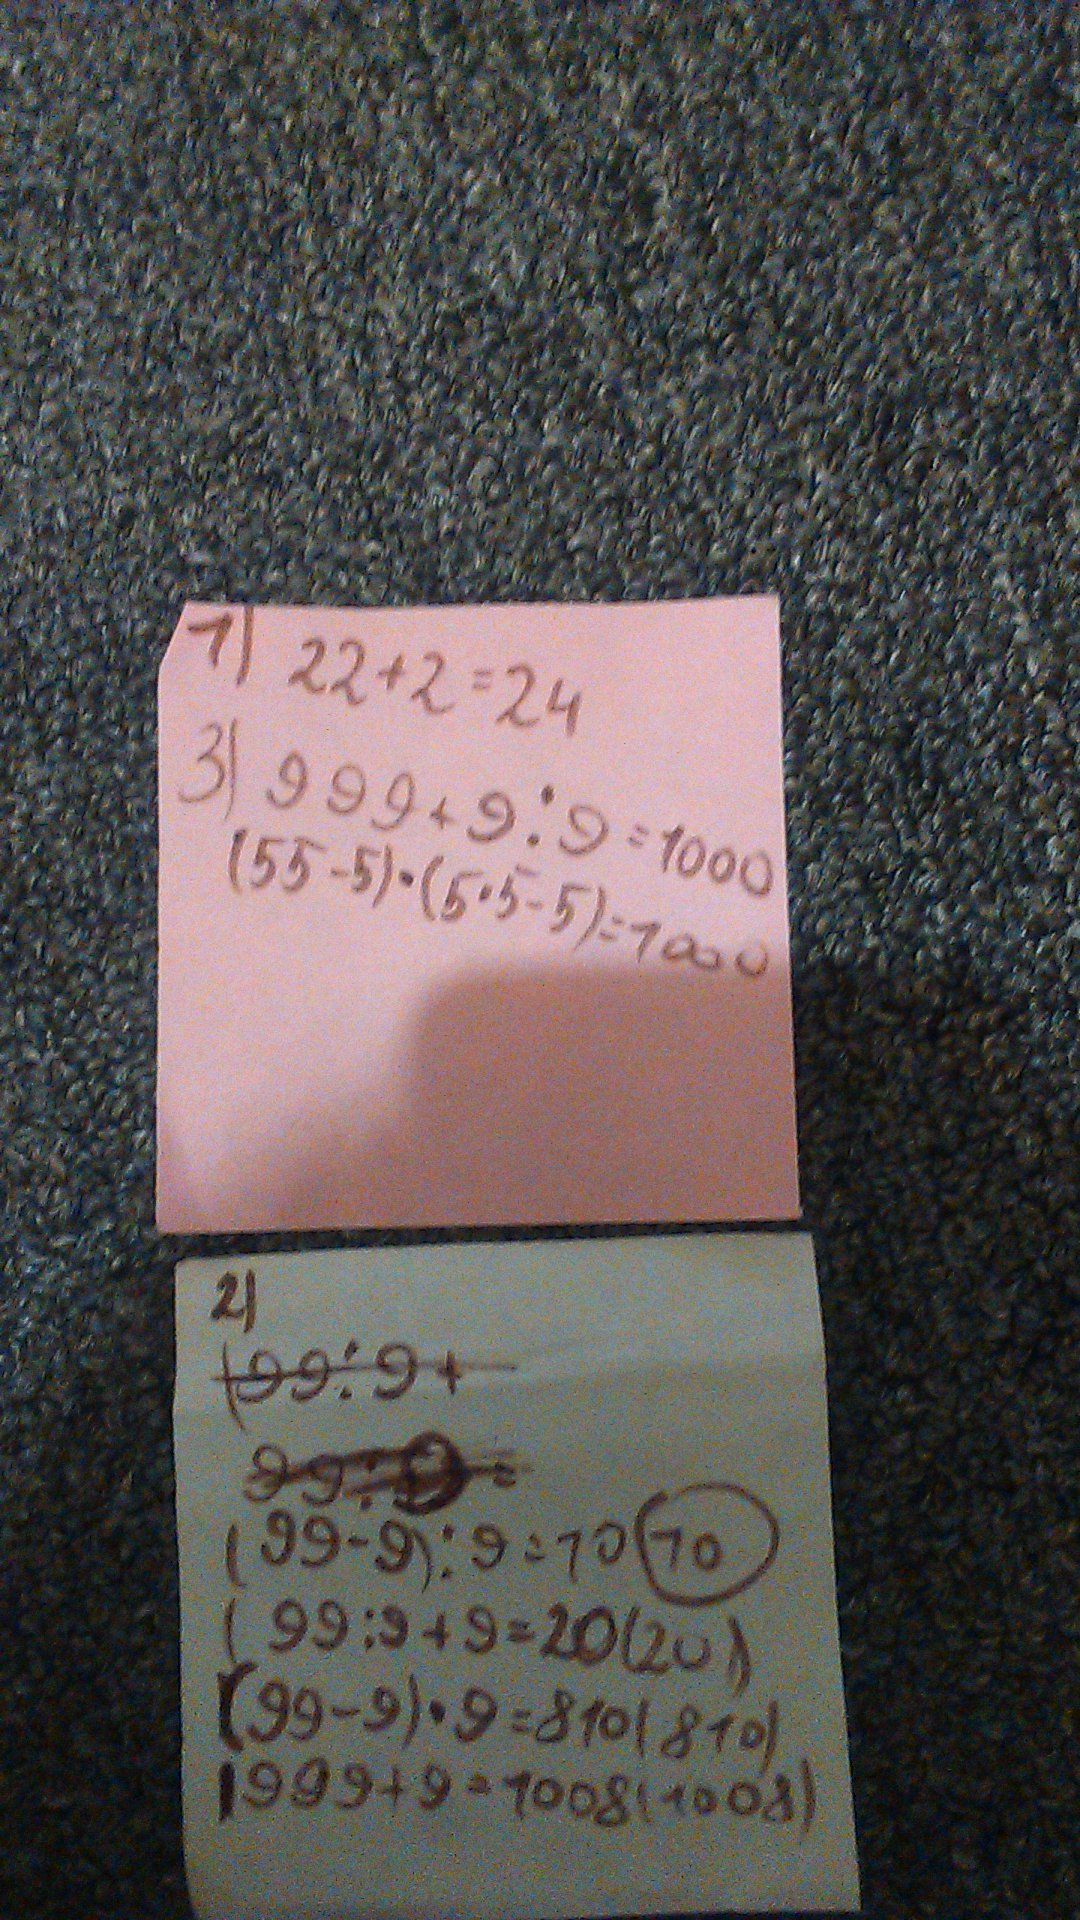 1) 22+2=24
3) 999+9:9=1000
(55-5)·(5·5-5)=1000
2)
(99:9+
(99-9):9=10 10
(99:9+9=20(20)
(99-9)·9=810(810)
999+9=1008(1008)